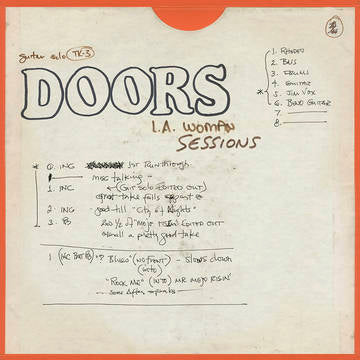 guitar solo TK-3
DOORS
L.A. WOMAN
SESSIONS
1. RHODES
2. BASS
3. DRUMS
4. GUITAR
5. JIM VOX
6. BEND GUITAR
7.
8.
0. INC 1st Run through
misc talking
1. INC (GUIT SOLO EDITED OUT)
take falls apart
2. INC good till "City of Nights"
3. 2nd 1/2 of "MOJO RISIN" EDITED OUT
overall a pretty good take
1 "? BLUES" (NO FRONT) - SLOWS DOWN
(INTO)
"ROCK ME" (INTO) MR MOJO RISIN'